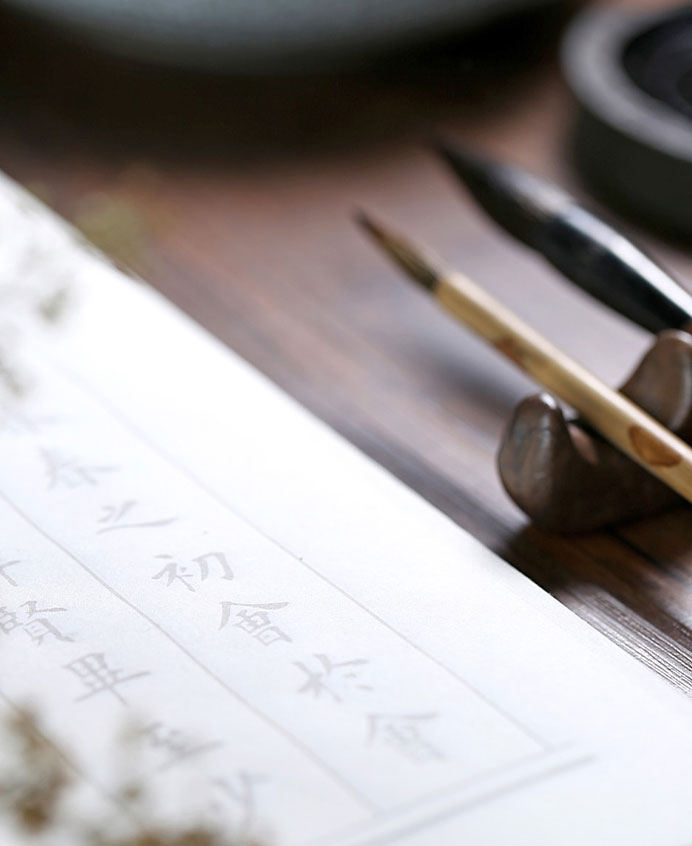 春之初會於會
賢畢至少